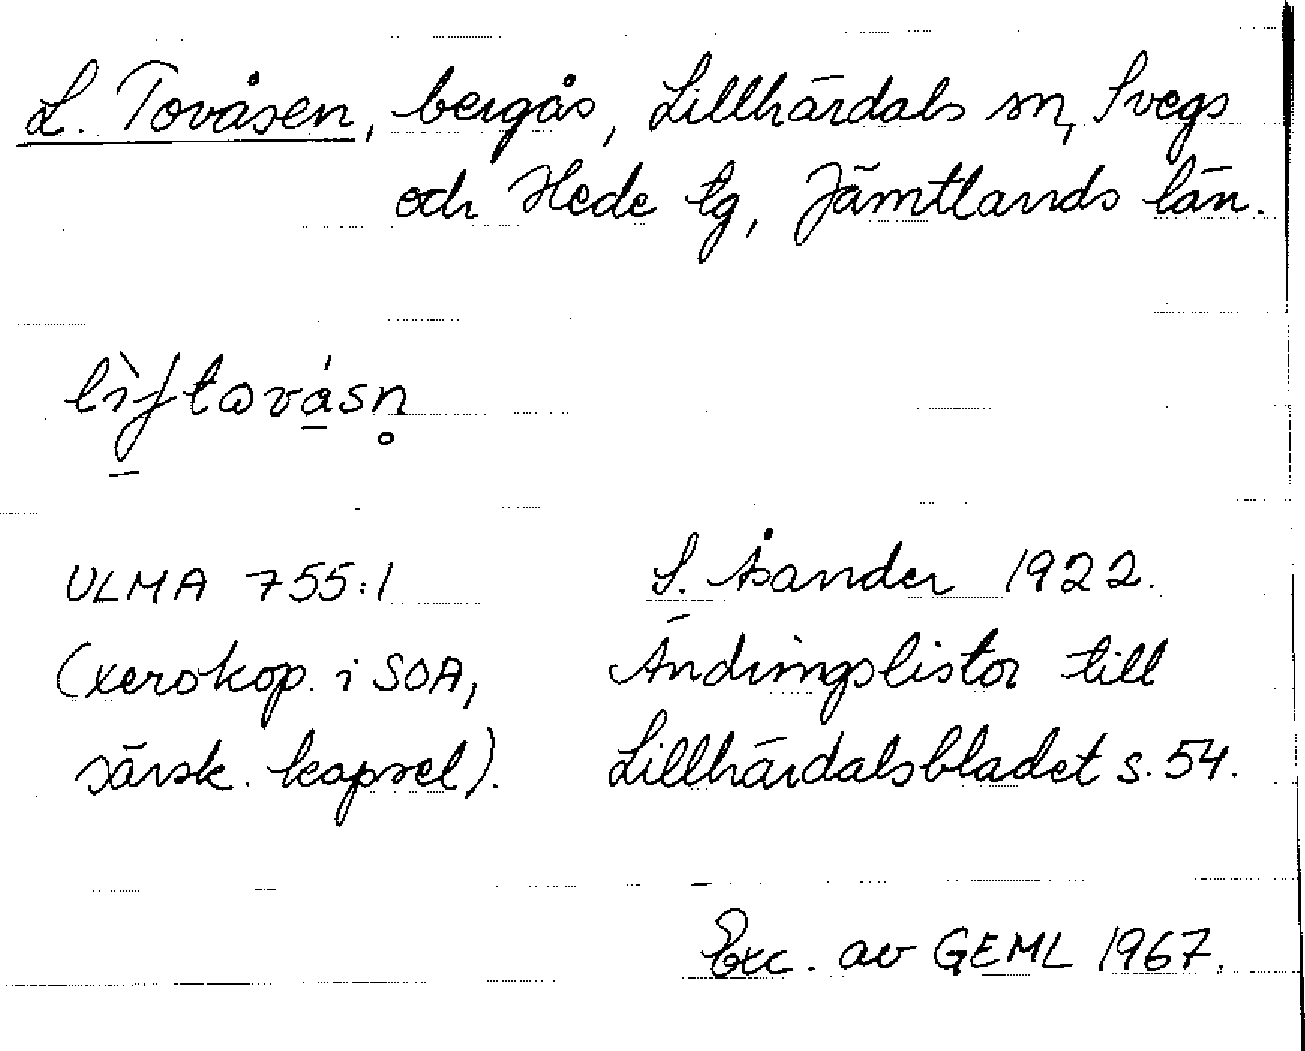 L. Tovåsen, bergås, Lillhärdals sn, Svegs
och Hede tg, Jämtlands län.
lìʃtovásn̥
ULMA 755:1
(xerokop. i SOA,
särsk. kapsel).
S. Åsander 1922.
Ändringslistor till
Lillhärdalsbladet s. 54.
Exc. av GEML 1967.